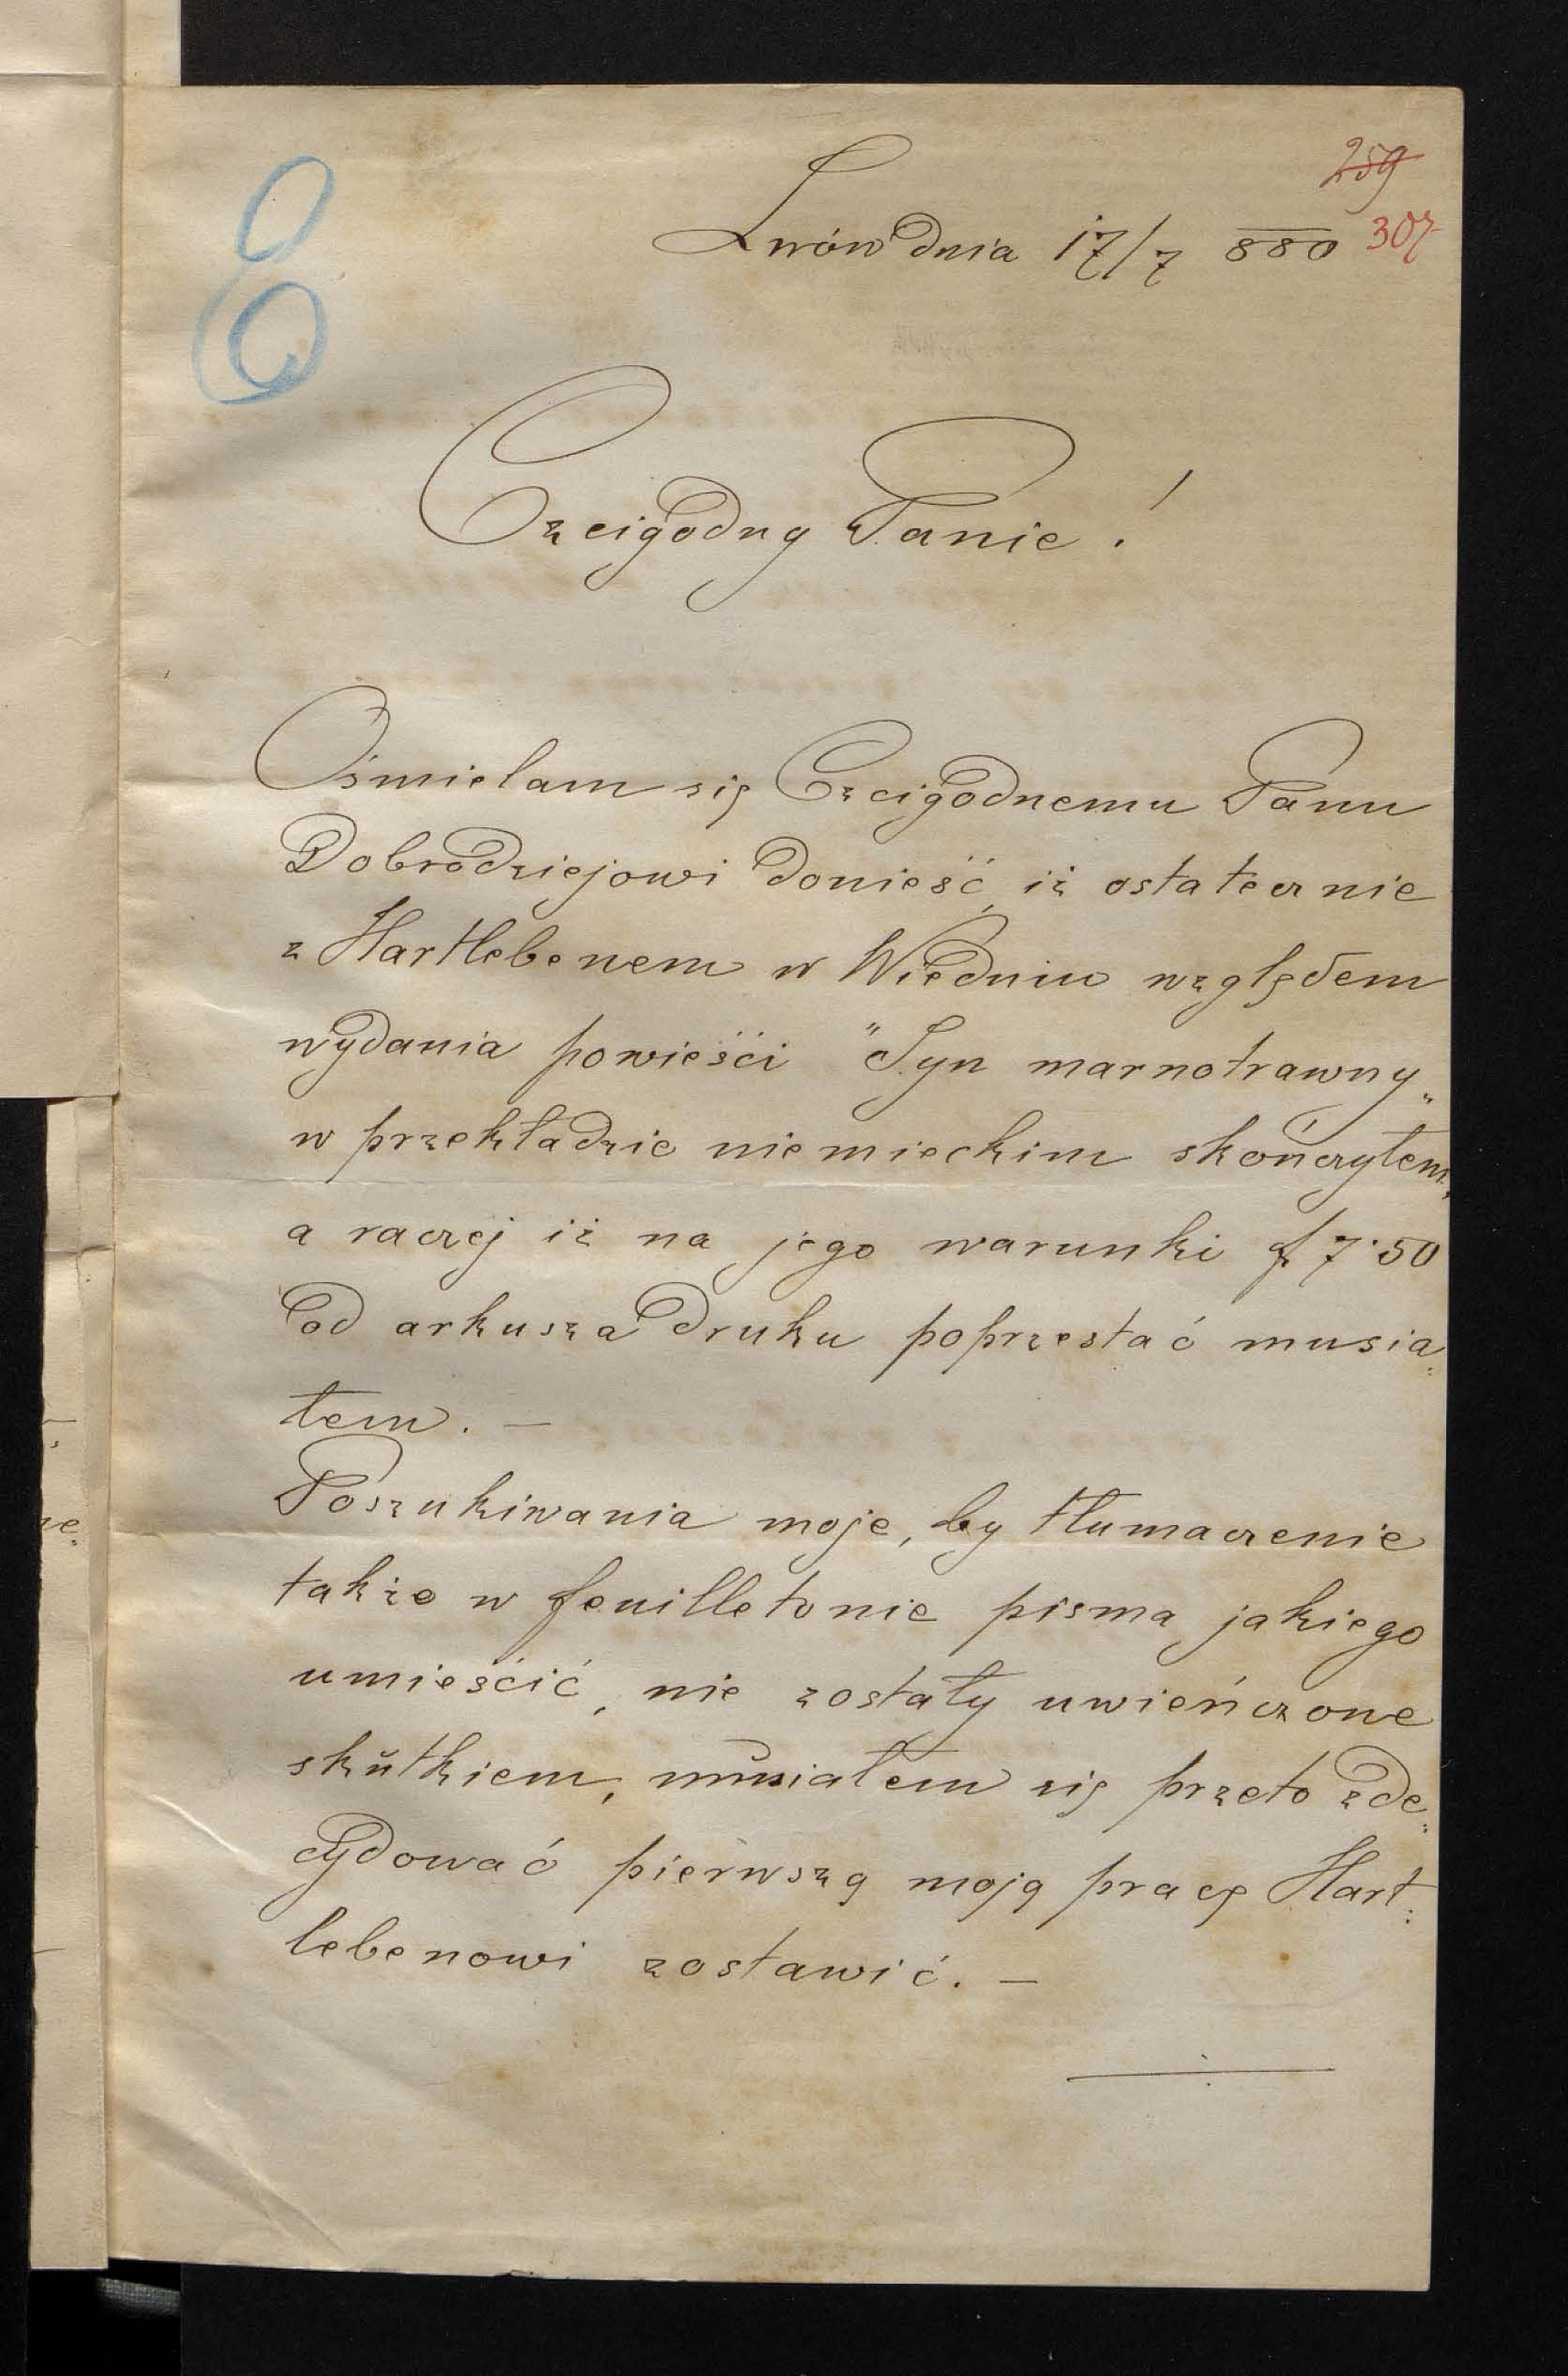 E
259
307
Lwów dnia 17/7 880
Czcigodny Panie!
Ośmielam się Czcigodnemu Panu
Dobrodziejowi donieść, iż ostatecznie
z Hartlebenem w Wiedniu względem
wydania powieści "Syn marnotrawny„
w przekładzie niemieckim skończyłem,
a raczej iż na jego warunki f 7·50
od arkusza druku poprzestać musia„
łem. —
Poszukiwania moje, by tłumaczenie
także w feuilletonie pisma jakiego
umieścić, nie zostały uwieńczone
skutkiem, musiałem się przeto zde„
cydować pierwszą moją pracę Hart„
lebenowi zostawić. —